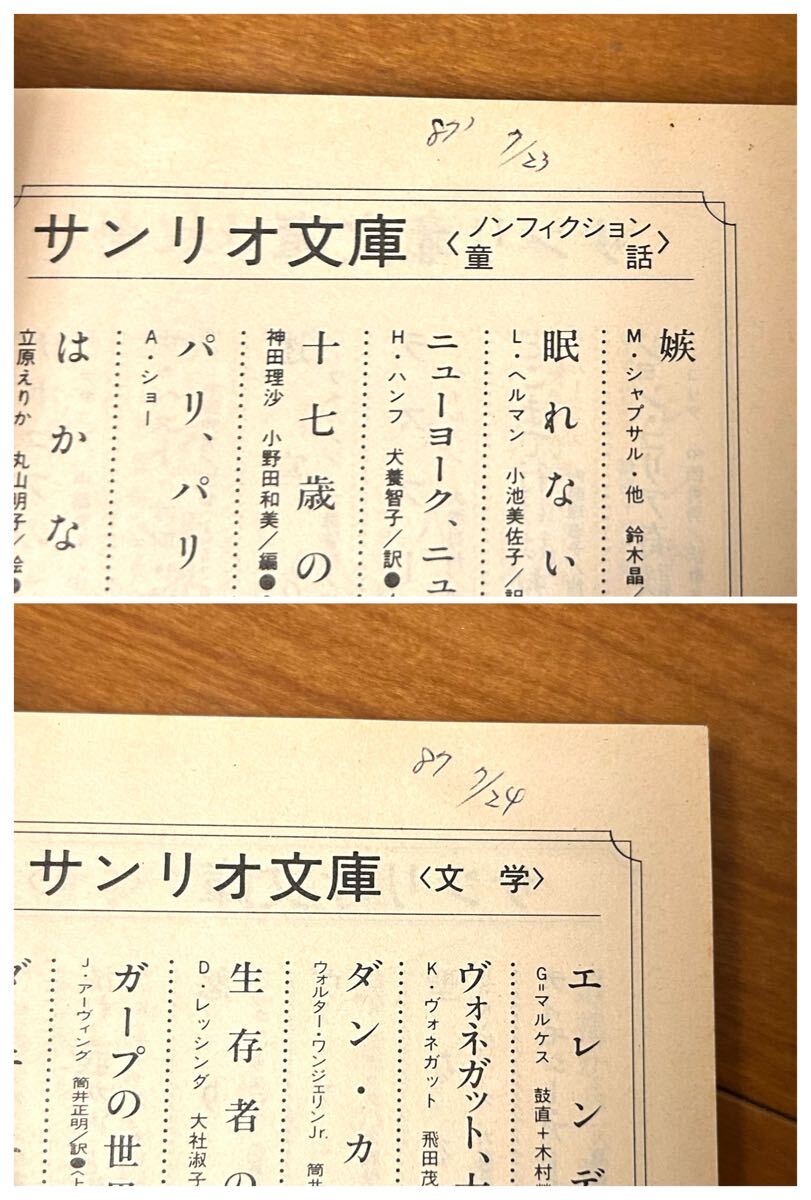 87' 7/23
サンリオ文庫〈ノンフィクション 童話〉
嫉
M・シャプサル・他 鈴木晶／
眠れない
L・ヘルマン 小池美佐子／訳
ニューヨーク、ニュ
H・ハンフ 犬養智子／訳●
十七歳の
神田理沙 小野田和美／編●
パリ、パリ
A・ショー
はかな
立原えりか 丸山明子／絵●
87 7/24
サンリオ文庫〈文学〉
エレンデ
G＝マルケス 鼓直＋木村
ヴォネガット、大
K・ヴォネガット 飛田茂
ダン・カ
ウォルター・ワンジェリンJr. 筒井
生存者の
D・レッシング 大社淑子
ガープの世界
J・アーヴィング 筒井正明／訳●〈上